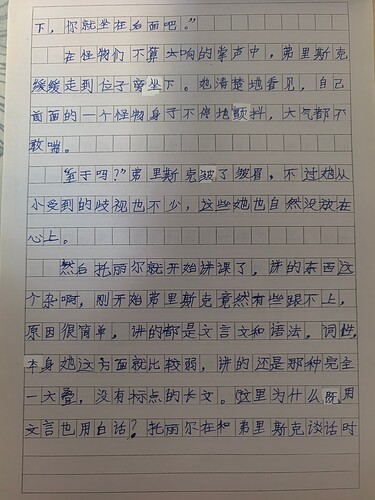 下，你就坐在后面吧。”
在怪物们不算太响的掌声中，弗里斯克
缓缓走到位子旁坐下。她清楚地看见，自己
前面的一个怪物身子不停地颤抖，大气都不
敢喘。
至于吗？”弗里斯克皱了皱眉，不过她从
小受到的歧视也不少，这些她也自然没放在
心上。
然后托丽尔就开始讲课了，讲的东西这
个杂啊，刚开始弗里斯克竟然有些跟不上，
原因很简单，讲的都是文言文和语法，词性，
本身她这方面就比较弱，讲的还是那种完全
一大叠，没有标点的长文。这里为什么既用
文言也用白话？托丽尔在和弗里斯克谈话时